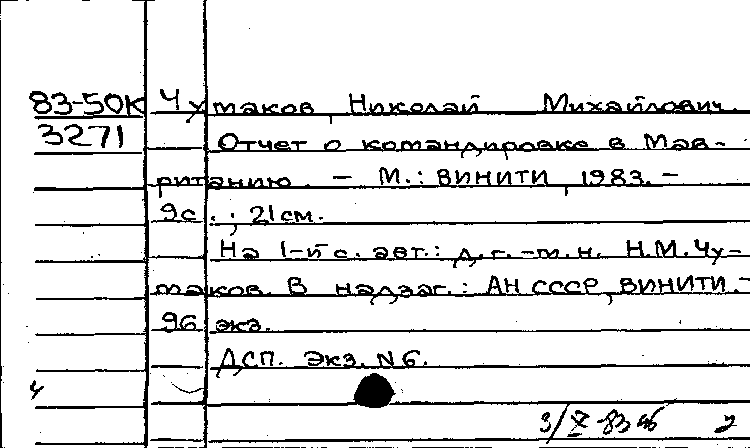 83-50К Чутаков, Николай Михайлович.
3271 Отчет о командировке в Мав-
ританию. – М.: ВИНИТИ, 1983. –
9с.; 21см.
На 1-й с. авт.: д.г.-м.н. Н.М.Чу-
маков. В надзаг.: АН СССР, ВИНИТИ. –
96 экз.
ДСП. Экз. N6.
ч
3/X-83 2